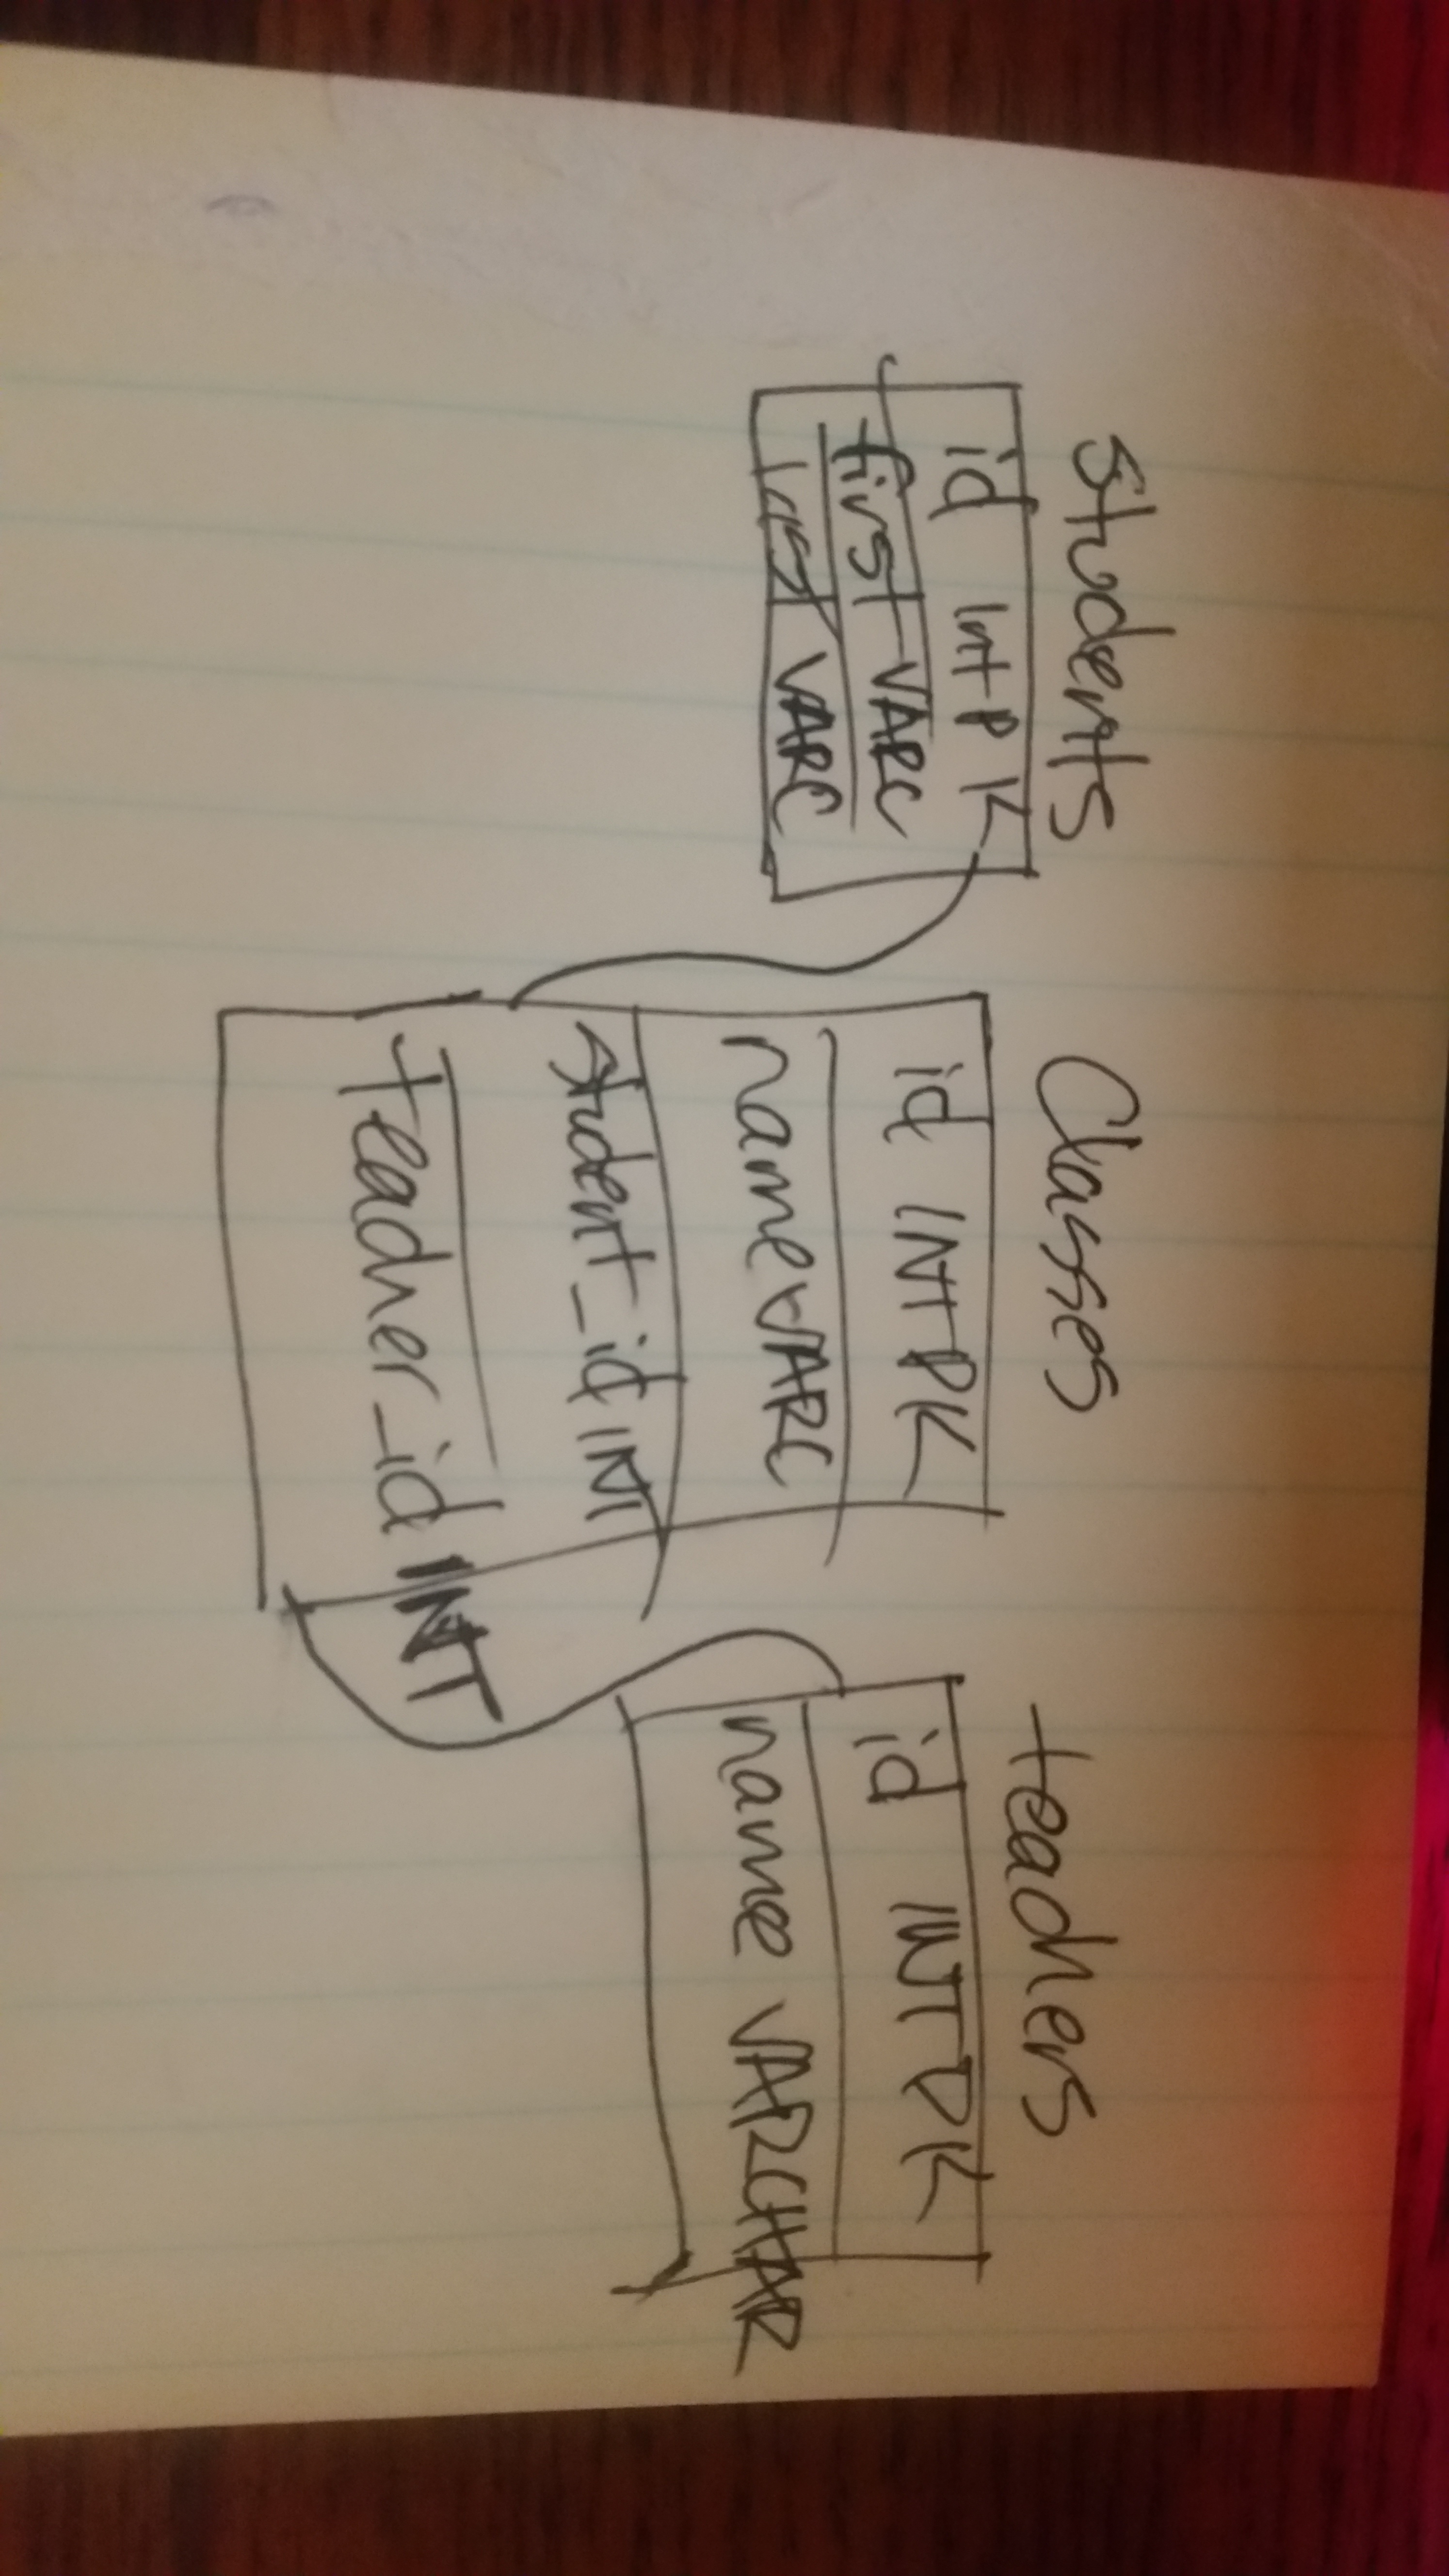 Students
id Int PK
first VARC
last VARC
Classes
id INT PK
name VARC
student_id INT
teacher_id INT
teachers
id INT PK
name VARCHAR